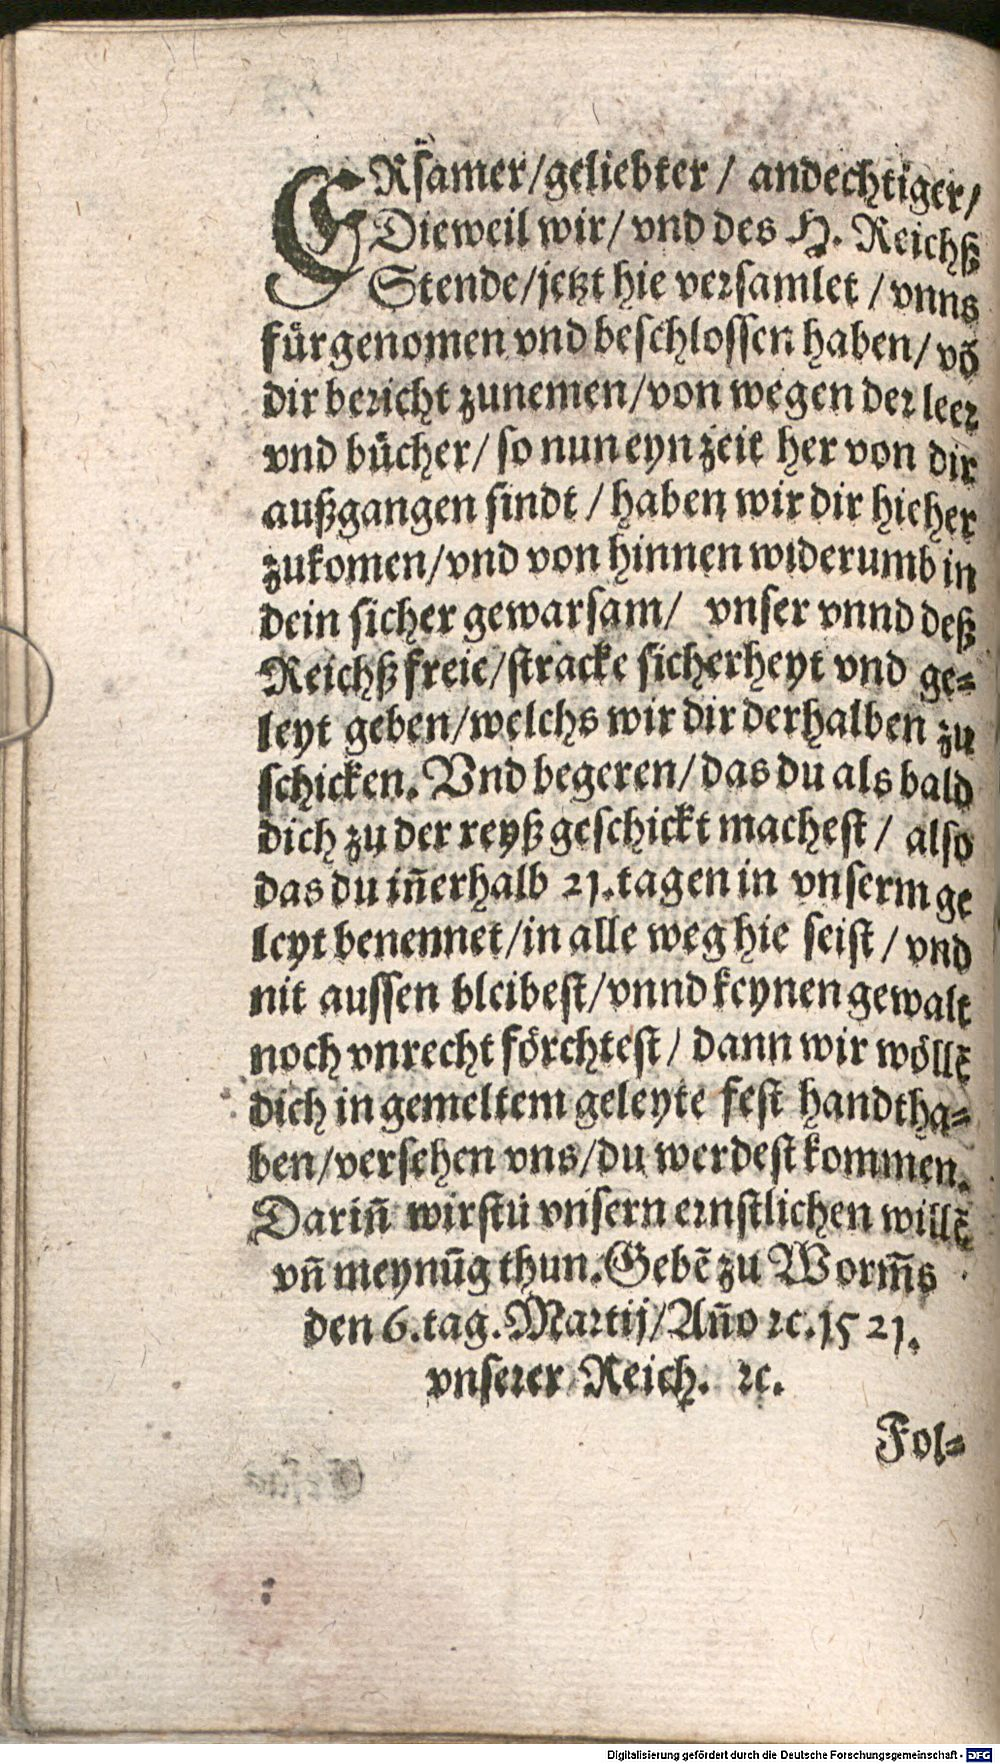 ERsamer/geliebter/ andechtiger/
Dieweil wir/ vnd des H. Reichß
Stende/jetzt hie versamlet / vnns
fürgenomen vnd beschlossen haben/ võ
dir bericht zunemen/von wegen der leer
vnd bücher/ so nun eyn zeit her von dir
außgangen sindt / haben wir dir hieher
zukomen/vnd von hinnen widerumb in
dein sicher gewarsam/ vnser vnnd deß
Reichß freie/stracke sicherheyt vnd ge=
leyt geben/welchs wir dir derhalben zu
schicken. Vnd begeren/das du als bald
dich zu der reyß geschickt machest / also
das du iñerhalb 21.tagen in vnserm ge
leyt benennet/in alle weg hie seist / vnd
nit aussen bleibest/vnnd keynen gewalt
noch vnrecht förchtest/ dann wir wöllẽ
dich in gemeltem geleyte fest handtha=
ben/versehen vns/du werdest kommen.
Dariñ wirstu vnsern ernstlichen willẽ
vñ meynũg thun.Gebẽ zu Worm̃s
den 6.tag.Martij/Año ꝛc.1521.
vnserer Reich. ꝛc.
Fol=
Digitalisierung gefördert durch die Deutsche Forschungsgemeinschaft - DFG